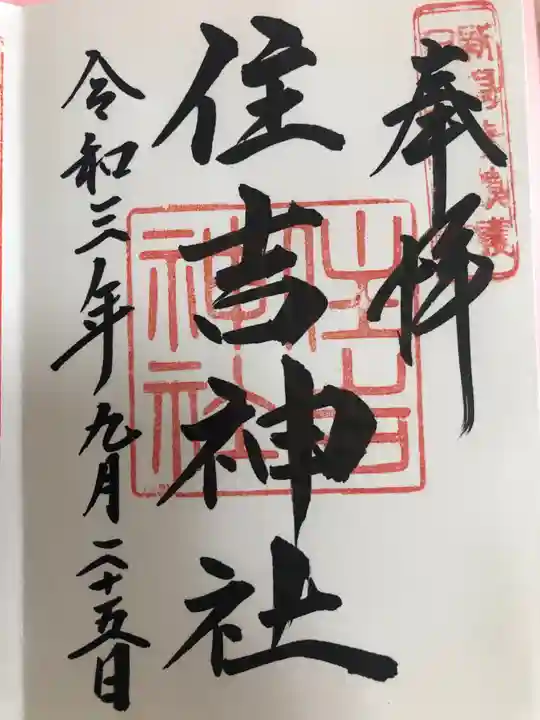 奉拝
住吉神社
住吉
神社
令和三年九月二十五日